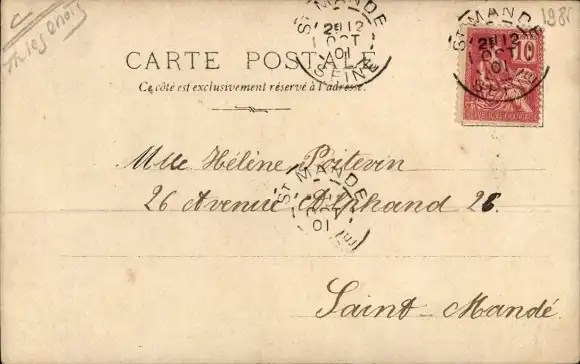 1981
ST MANDÉ
2E 12
1 OCT
01
SEINE
ST MANDÉ
2E 12
1 OCT
01
SEINE
10
CARTE POSTALE
Ce côté est exclusivement réservé à l'adresse.
Mlle Hélène Poitevin
26 Avenue Alphand 26.
ST MANDÉ
01
Saint-Mandé